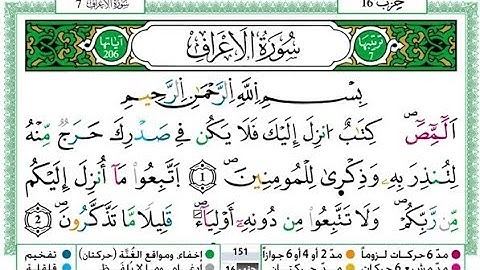 حزب 16
سورة الأعراف 7
ترتيبها 7
سُورَةُ الأَعْرَافِ
آياتها 206
بِسْمِ اللَّهِ الرَّحْمَٰنِ الرَّحِيمِ
أَلَٓمِّٓصَٓ كِتَٰبٌ انزِلَ إِلَيْكَ فَلَا يَكُن فِي صَدْرِكَ حَرَجٌ مِّنْهُ
لِتُنذِرَ بِهِۦ وَذِكْرَىٰ لِلْمُومِنِينَ 1 اَتَّبِعُوا مَآ أُنزِلَ إِلَيْكُم
مِّن رَّبِّكُمْ وَلَا تَتَّبِعُوا مِن دُونِهِۦٓ أَوْلِيَآءَ قَلِيلًا مَّا تَذَّكَّرُونَ 2
مدّ 6 حركات لزوماً مدّ 2 أو 4 أو 6 جوازاً 151 إخفاء، ومواقع الغُنَّة (حركتان) تفخيم
مدّ مشبع 6 حركات مدّ حركتان 16 إدغام، وما لا يُلفَظ قلقلة